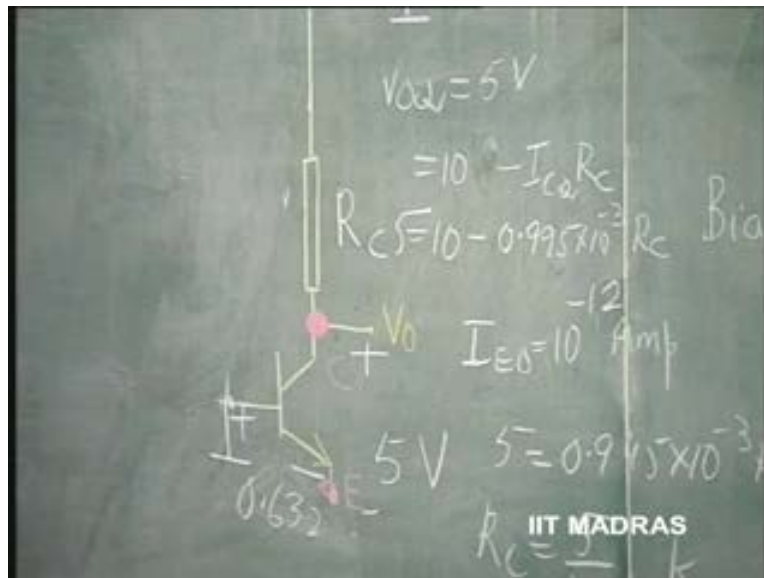 V_OQ = 5V
= 10 - I_CQ R_C
R_C 5 = 10 - 0.995×10^-3 R_C
Bia
V_O
+
I_EO = 10^-12 Amp
C
+
5V
5 = 0.995×10^-3 ×
0.632
E
IIT MADRAS
R_C = 5 k